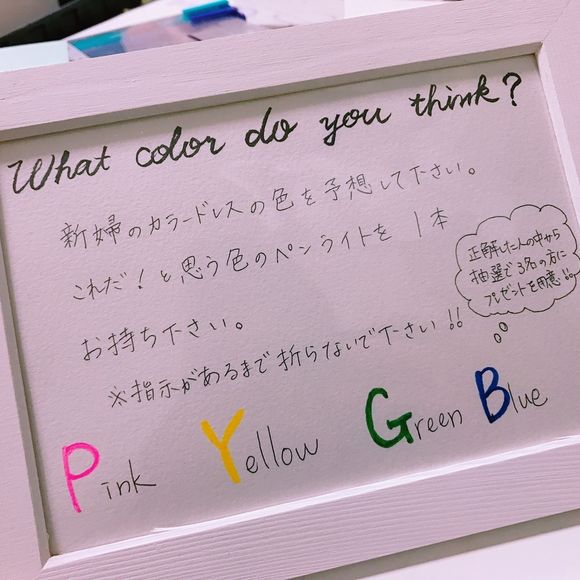 What color do you think?
新婦のカラードレスの色を予想して下さい。
これだ!と思う色のペンライトを 1本
お持ち下さい。
※指示があるまで折らないで下さい!!
正解した人の中から
抽選で3名の方に
プレゼントを用意!!
Pink Yellow Green Blue